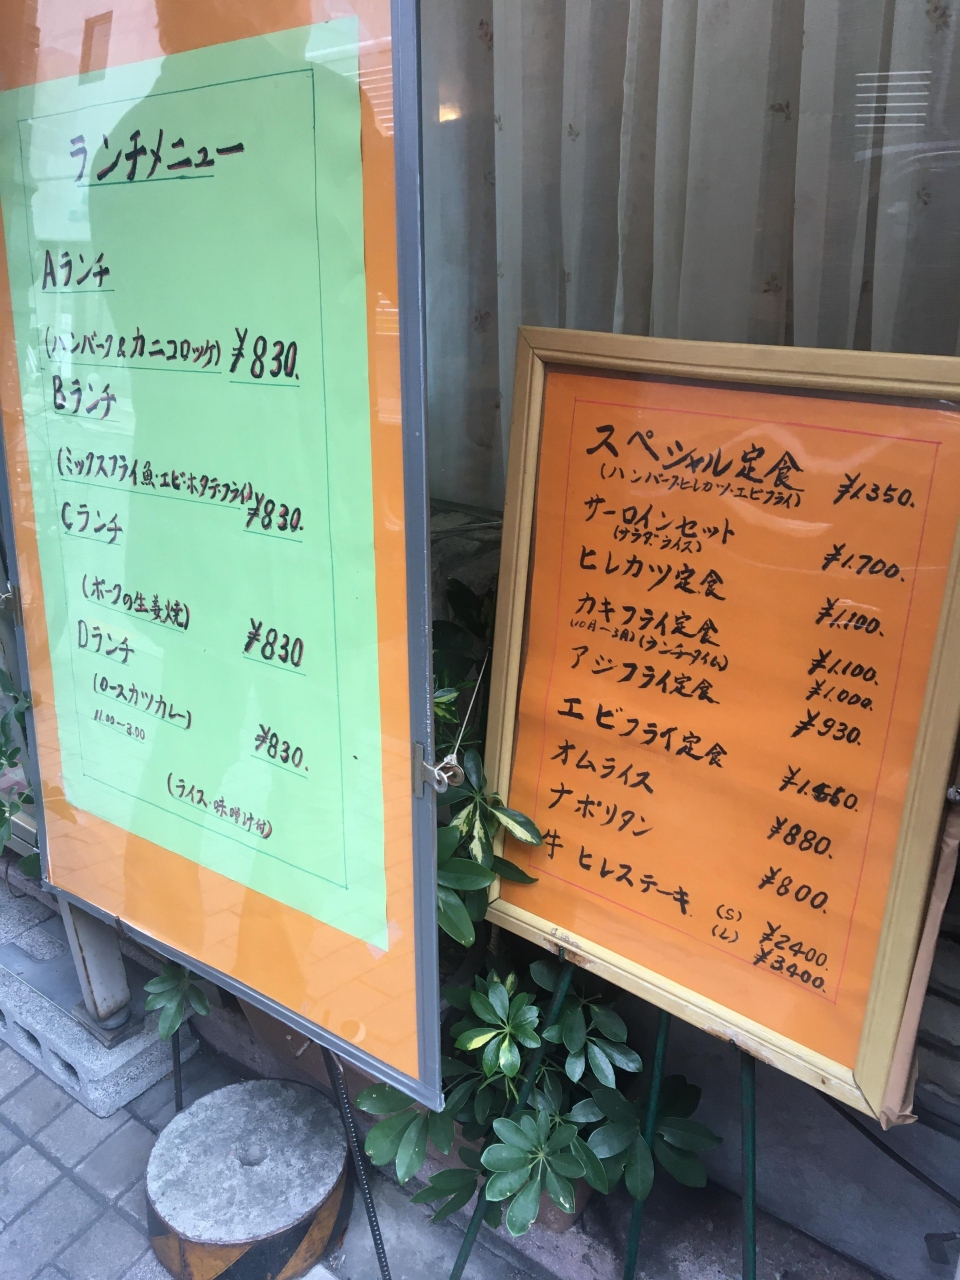 ランチメニュー
Aランチ
(ハンバーク&カニコロッケ) ¥830.
Bランチ
(ミックスフライ魚・エビ・ホタテ・フライ) ¥830.
Cランチ
(ポークの生姜焼) ¥830
Dランチ
(ロースカツカレー)
11.00〜3.00 ¥830.
(ライス・味噌汁付)
スペシャル定食 ¥1.350.
(ハンバーク・ヒレカツ・エビフライ)
サーロインセット ¥1.700.
(サラダ・ライス)
ヒレカツ定食 ¥1.100.
カキフライ定食 ¥1.100.
(10月〜3月)(ランチタイム) ¥1.000.
アジフライ定食 ¥930.
エビフライ定食
オムライス ¥880.
ナポリタン ¥800.
牛ヒレステーキ (S) ¥2400.
(L) ¥3.400.